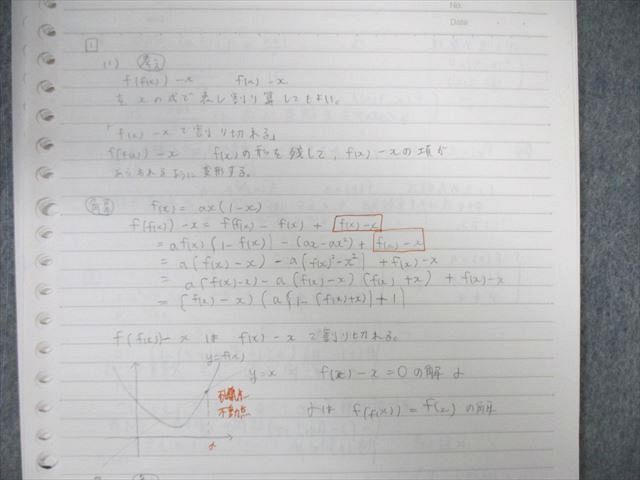 No.
Date
1
(1) 考え
f(f(x)) - x f(x) - x
を x の式で表し割り算してもよい。
「f(x) - x で割り切れる」
f(f(x)) - x f(x) の形を残して、f(x) - x の項が
あらわれるように変形する。
解答 f(x) = ax(1-x)
f(f(x)) - x = f(f(x)) - f(x) + f(x) - x
= af(x){1-f(x)} - (ax-ax²) + f(x) - x
= a(f(x) - x) - a{f(x)²-x²} + f(x) - x
= a(f(x)-x) - a(f(x) - x)(f(x) + x) + f(x) - x
= {f(x) - x}{a{1-(f(x)+x)} + 1}
f(f(x)) - x は f(x) - x で割り切れる。
y=f(x)
y=x f(x) - x = 0 の解 α
不動点
α
αは f(f(x)) = f(x) の解